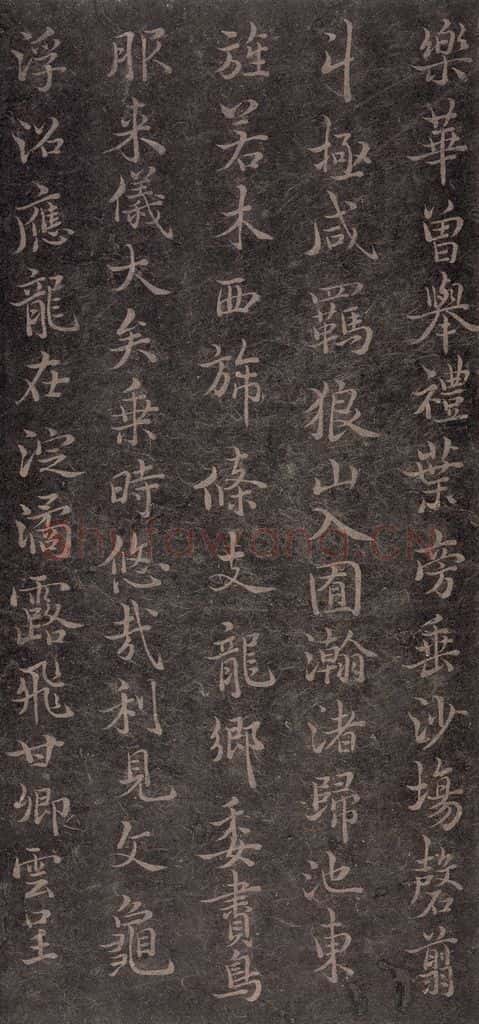 樂華曾舉禮葉旁垂沙塲罄翦
斗極咸羈狼山入囿瀚渚歸池東
旌若木西旆條支龍鄉委賮鳥
服来儀大矣乗時悠哉利見文龜
浮沼應龍在淀潏露飛甘卿雲呈